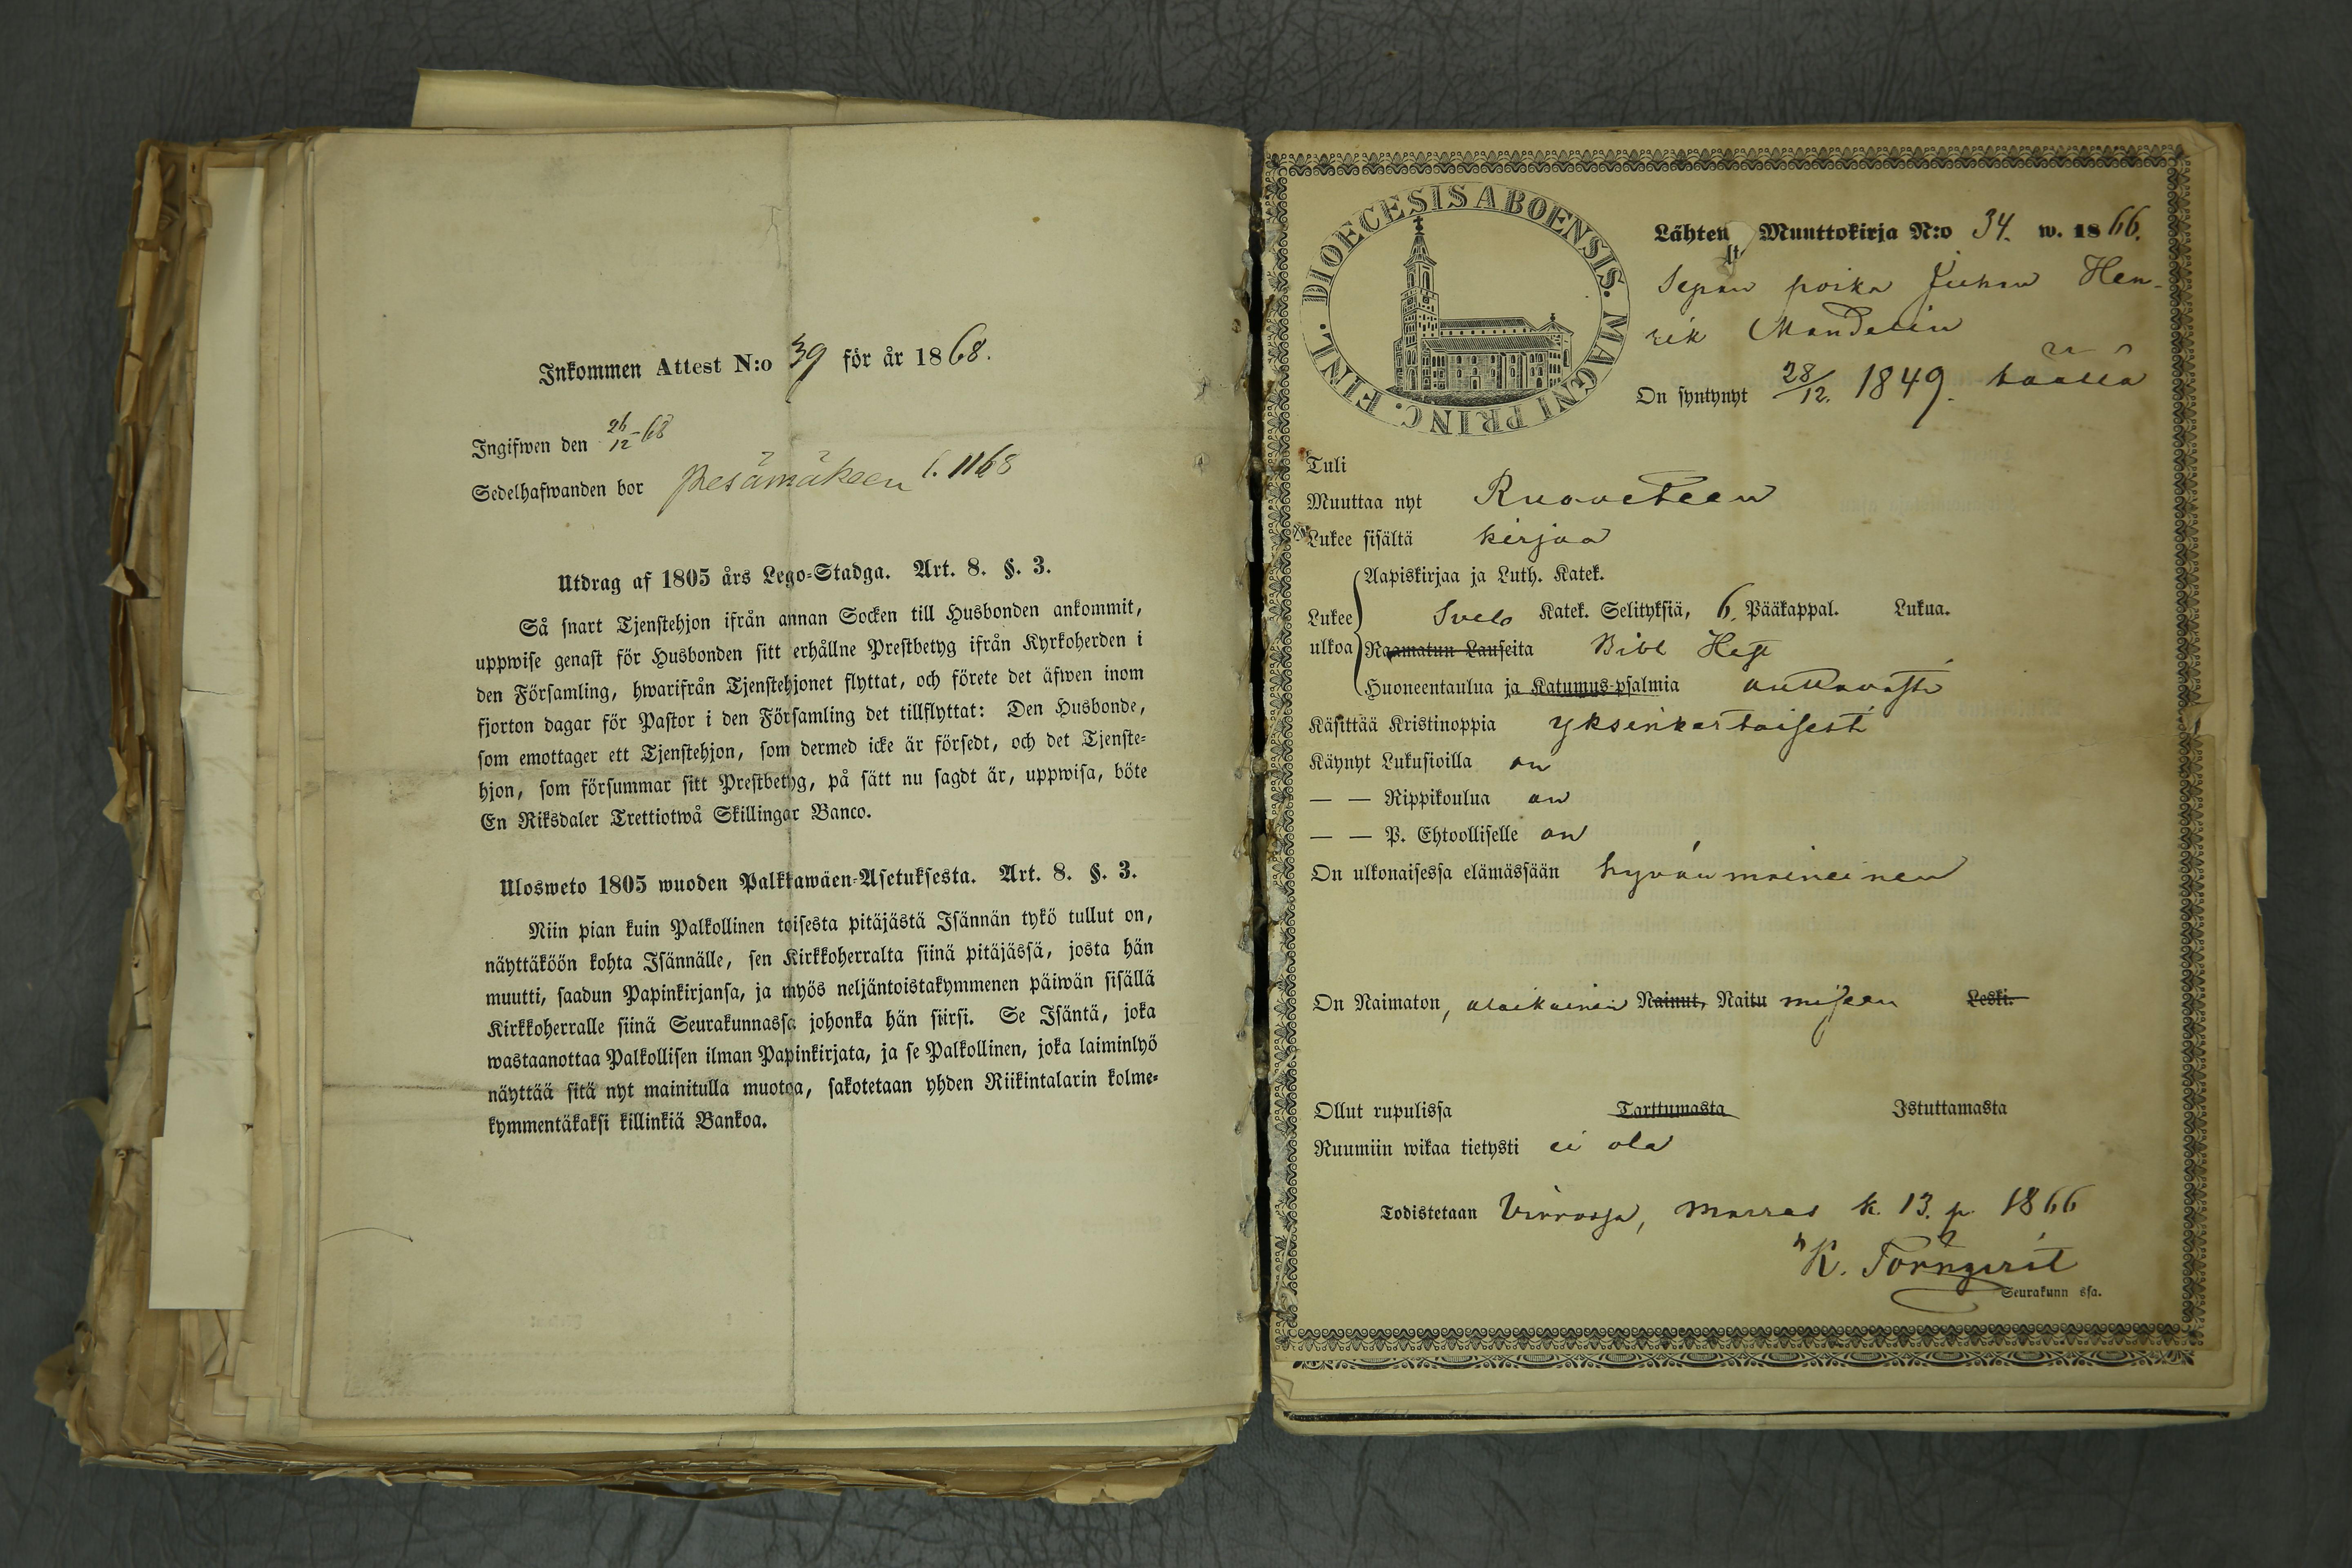 Inkommen Attest N:o 39 för år 1868.
Ingifwen den 26/12-68
Sedelhafwanden bor Pesämäkeen l. 1168
Utdrag af 1805 års Lego-Stadga. Art. 8. §. 3.
Så snart Tjenstehjon ifrån annan Socken till Husbonden ankommit,
uppwise genast för Husbonden sitt erhållne Prestbetyg ifrån Kyrkoherden i
den Församling, hwarifrån Tjenstehjonet flyttat, och förete det äfwen inom
fjorton dagar för Pastor i den Församling det tillflyttat: Den Husbonde,
som emottager ett Tjenstehjon, som dermed icke är försedt, och det Tjenste-
hjon, som försummar sitt Prestbetyg, på sätt nu sagdt är, uppwisa, böte
En Riksdaler Trettiotwå Skillingar Banco.
Ulosweto 1805 wuoden Palkkawäen-Asetuksesta. Art. 8. §. 3.
Niin pian kuin Palkollinen toisesta pitäjästä Isännän tykö tullut on,
näyttäköön kohta Isännälle, sen Kirkkoherralta siinä pitäjässä, josta hän
muutti, saadun Papinkirjansa, ja myös neljäntoistakymmenen päiwän sisällä
Kirkkoherralle siinä Seurakunnassa johonka hän siirsi. Se Isäntä, joka
wastaanottaa Palkollisen ilman Papinkirjata, ja se Palkollinen, joka laiminlyö
näyttää sitä nyt mainitulla muotoa, sakotetaan yhden Riikintalarin kolme-
kymmentäkaksi killinkiä Bankoa.
DIOECESIS ABOENSIS. MAGNI PRINC. FINL.
Lähten Muuttokirja N:o 34. w. 1866.
Sepän poika Juhan Hen-
rik Mandelin
On syntynyt 28/12. 1849. täällä
Tuli
Muuttaa nyt Ruoveteen
Lukee sisältä kirjaa
Aapiskirjaa ja Luth. Katek.
Lukee ulkoa Svebo Katek. Selityksiä, 6. Pääkappal. Lukua.
Raamatun Lauseita Bibl Hist
Huoneentaulua ja Katumus-psalmia auttavasti
Käsittää Kristinoppia yksinkertaisesti
Käynyt Lukusioilla on
— — Rippikoulua on
— — P. Ehtoolliselle on
On ulkonaisessa elämässään hyvänmaineinen
On Naimaton, alaikäinen Nainut, Naitu miseen Leski.
Ollut rupulissa Tarttumasta Istuttamasta
Ruumiin wikaa tietysti ei ola
Todistetaan Virroissa, marras k. 13. p. 1866
K. Törnqvist
Seurakunn ssa.